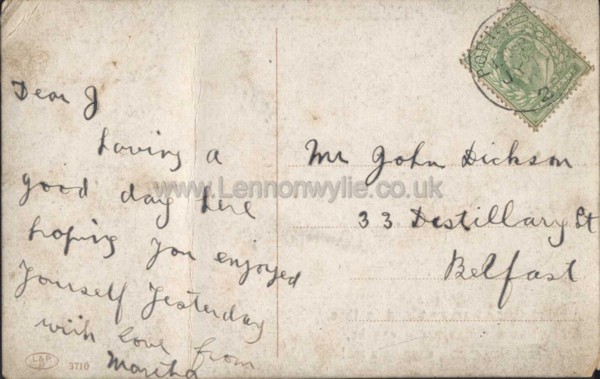 Dear J
having a
good day here
hoping you enjoyed
yourself yesterday
with love from
Martha
Mr John Dickson
33 Distillary St
Belfast
www.Lennonwylie.co.uk
3710